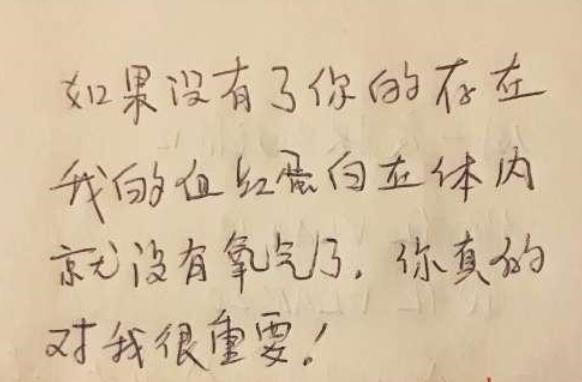 如果没有了你的存在
我的血红蛋白在体内
就没有氧气了，你真的
对我很重要！